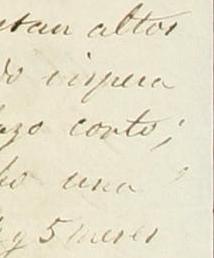 estan altos
do vispera
lazo corto;
bo una
y 5 meses